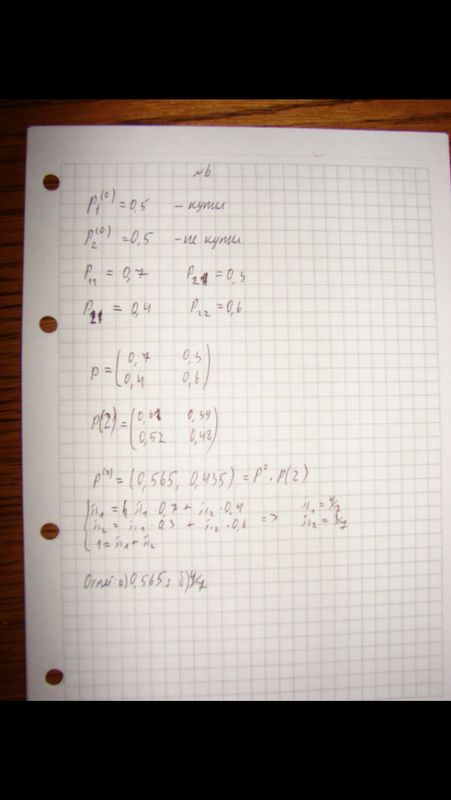 №6
P₁⁽⁰⁾ = 0,5 – купил
P₂⁽⁰⁾ = 0,5 – не купил
P₁₁ = 0,7 P₂₁ = 0,3
P₂₁ = 0,4 P₂₂ = 0,6
P = (0,7 0,3
0,4 0,6)
P(2) = (0,61 0,39
0,52 0,48)
P⁽²⁾ = (0,565, 0,435) = P⁰ · P(2)
π₁ = π₁ · 0,7 + π₂ · 0,4 π₁ = 4/7
π₂ = π₁ · 0,3 + π₂ · 0,6 => π₂ = 3/7
1 = π₁ + π₂
Ответ: а) 0,565; б) 4/7